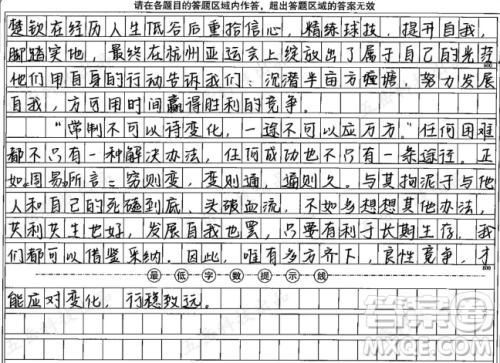 请在各题目的答题区域内作答，超出答题区域的答案无效
楚钦在经历人生低谷后重拾信心，精练球技，提升自我，
脚踏实地，最终在杭州亚运会上绽放出了属于自己的光芒
他们用自身的行动告诉我们：沉潜半亩方塘，努力发展
自我，方可用时间赢得胜利的竞争。
“常制不可以待变化，一途不可以应万方。”任何困难
都不只有一种解决办法，任何成功也不只有一条途径。正
如《周易》所言：穷则变，变则通，通则久。与其拘泥于与他
人和自己的死磕到底，头破血流，不如多想想其他办法，
共利共生也好，发展自我也罢，只要有利于长期生存，我
们都可以借鉴采纳。因此，唯有多方齐下，良性竞争，才
800
最低字数提示线
能应对变化，行稳致远。
答案圈